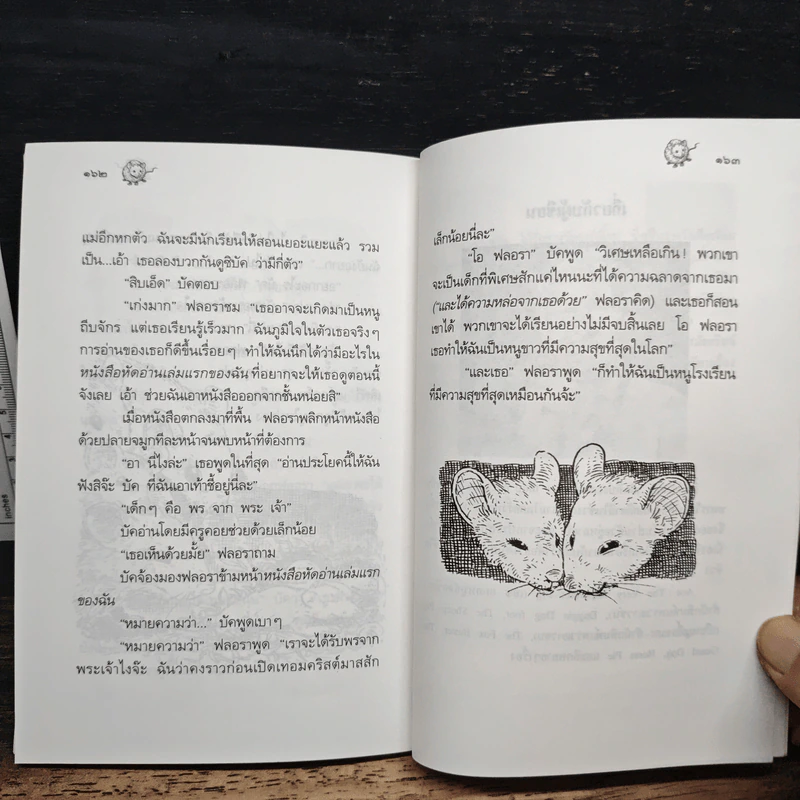 ๑๖๒
แม่อีกหกตัว ฉันจะมีนักเรียนให้สอนเยอะแยะแล้ว รวม
เป็น...เอ้า เธอลองบวกกันดูซิบัค ว่ามีกี่ตัว”
“สิบเอ็ด” บัคตอบ
“เก่งมาก” ฟลอราชม “เธออาจจะเกิดมาเป็นหนู
ถีบจักร แต่เธอเรียนรู้เร็วมาก ฉันภูมิใจในตัวเธอจริงๆ
การอ่านของเธอก็ดีขึ้นเรื่อยๆ ทำให้ฉันนึกได้ว่ามีอะไรใน
หนังสือหัดอ่านเล่มแรกของฉัน ที่อยากจะให้เธอดูตอนนี้
จังเลย เอ้า ช่วยฉันเอาหนังสือออกจากชั้นหน่อยสิ”
เมื่อหนังสือตกลงมาที่พื้น ฟลอราพลิกหน้าหนังสือ
ด้วยปลายจมูกทีละหน้าจนพบหน้าที่ต้องการ
“อา นี่ไงล่ะ” เธอพูดในที่สุด “อ่านประโยคนี้ให้ฉัน
ฟังสิจ๊ะ บัค ที่ฉันเอาเท้าชี้อยู่นี่ละ”
“เด็กๆ คือ พร จาก พระ เจ้า”
บัคอ่านโดยมีครูคอยช่วยด้วยเล็กน้อย
“เธอเห็นด้วยมั้ย” ฟลอราถาม
บัคจ้องมองฟลอราข้ามหน้าหนังสือหัดอ่านเล่มแรก
ของฉัน
“หมายความว่า...” บัคพูดเบาๆ
“หมายความว่า” ฟลอราพูด “เราจะได้รับพรจาก
พระเจ้าไงจ๊ะ ฉันว่าคงราวก่อนเปิดเทอมคริสต์มาสสัก
๑๖๓
เล็กน้อยนี่ละ”
“โอ ฟลอรา” บัคพูด “วิเศษเหลือเกิน! พวกเขา
จะเป็นเด็กที่พิเศษสักแค่ไหนนะที่ได้ความฉลาดจากเธอมา
(“และได้ความหล่อจากเธอด้วย” ฟลอราคิด) และเธอก็สอน
เขาได้ พวกเขาจะได้เรียนอย่างไม่มีจบสิ้นเลย โอ ฟลอรา
เธอทำให้ฉันเป็นหนูขาวที่มีความสุขที่สุดในโลก”
“และเธอ” ฟลอราพูด “ก็ทำให้ฉันเป็นหนูโรงเรียน
ที่มีความสุขที่สุดเหมือนกันจ้ะ”
inches